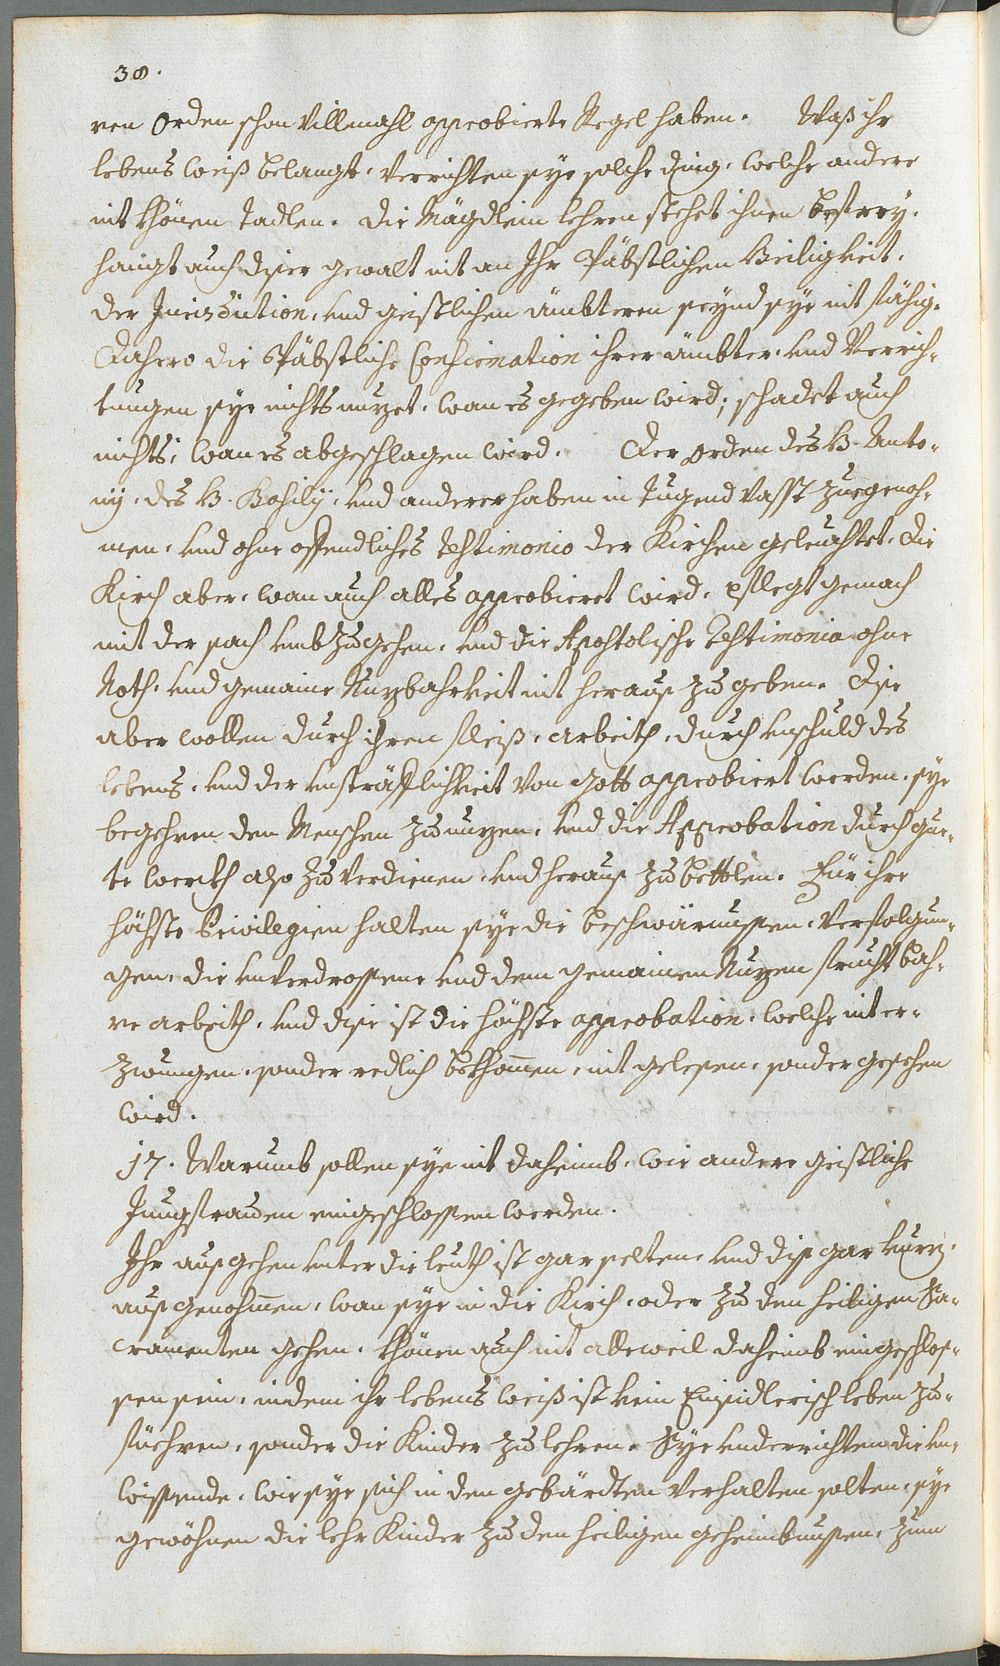 38.
ren Orden schon villmahl approbierte Regel haben. Waß ihr
lebens weiß belangt, verrichten sye solche ding, welche andere
nit khönen tadlen. die Mägdlein lehren stehet ihnen bestrey,
hangt auch diser gewalt nit an Ihr Päbstlichen Heiligkeit.
der Jurisdiction, und geistlichen ämbteren seynd sye nit fähig.
Dahero die Päbstliche Confirmation ihrer ämbter, und Verrich-
tungen sye nichts nuzet, wan es gegeben wird; schadet auch
nichts, wan es abgeschlagen wird. Der Orden des H. Anto-
nij, des H. Basilij, und anderer haben in Tugend vasst zuegenoh-
men, und ohne offendliches testimonio der Kirchen geleuchtet. die
Kirch aber, wan auch alles approbieret wird, pflegt gemach
mit der sach umbzugehen, und die Apostolische Testimonia ohne
Noth, und gemaine Nuzbahrkeit nit herauß zu geben. Dise
aber wollen durch ihren fleiß, arbeith, durch unschuld des
lebens, und der unsträfflichkeit von Gott approbiert werden. sye
begehren den Menschen zu nuzen, und die Approbation durch gue-
te werckh also zu verdienen, und herauß zu bettlen. Für ihre
höchste Privilegien halten sye die beschwärnussen, verfolgun-
gen, die unverdrossene und dem gemainen Nuzen frucht bah-
re arbeith, und dise ist die höchste approbation, welche nit er-
zwungen, sonder redlich bekhommen, nit gelesen, sonder gesehen
wird.
17. Warumb sollen sye nit daheimb, wie andere geistliche
Jungfrauen eingeschlossen werden.
Ihr ausgehen unter die leuth ist gar selten, und diß gar kurz,
ausgenohmen, wan sye in die Kirch, oder zu den heiligen Sa-
cramenten gehen. khönen auch nit alleweil daheimb eingeschlos-
sen sein, indem ihr lebens weiß ist kein Einsidlerisch leben zu-
füehren, sonder die Kinder zu lehren. Sye underrichten die un-
wissende, wie sye sich in den gebärdten verhalten solten, sye
gewöhnen die lehr Kinder zu den heiligen geheimbnussen, zum